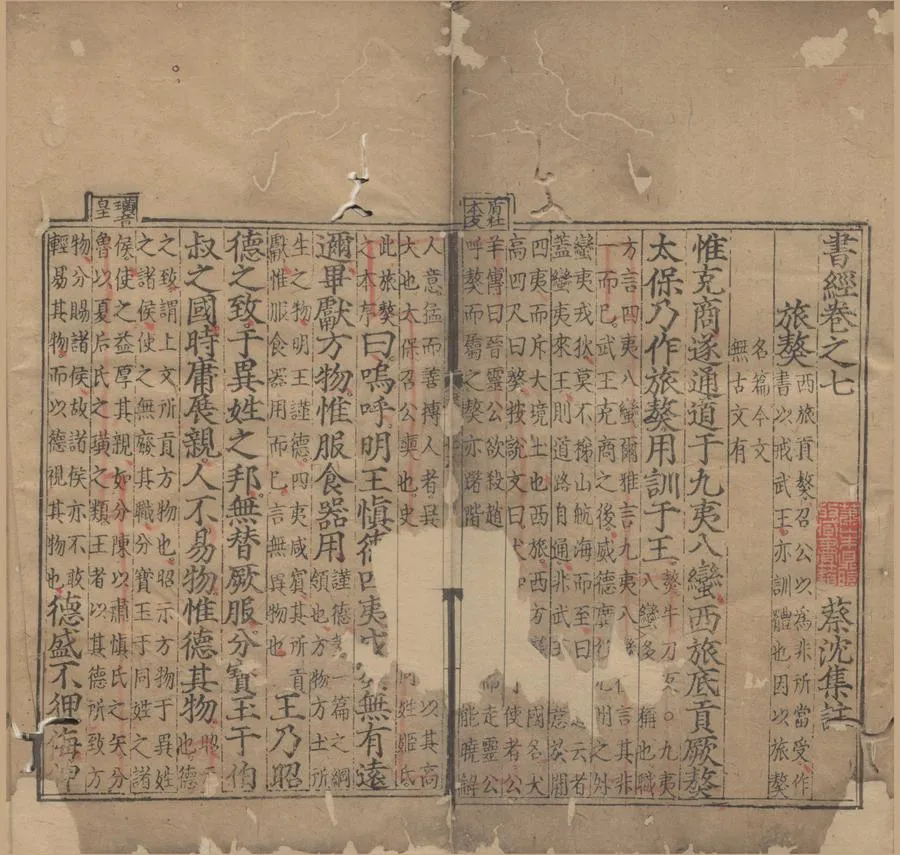 書經卷之七 蔡沈集註
旅獒
西旅貢獒召公以為非所當受作
書以戒武王亦訓體也因以旅獒
名篇今文
無古文有
惟克商遂通道于九夷八蠻西旅底貢厥獒
太保乃作旅獒用訓于王
獒牛刀 ○九夷
八蠻多 稱也職
方言四夷八蠻爾雅言九夷八 言其非
一而已武王克商之後威德廣 州之外
蠻夷戎狄莫不梯山航海而至曰 道云者
蓋蠻夷來王則道路自通非武 意於開
四夷而斥大境土也西旅西方 國名犬
高四尺曰獒按說文曰犬 使者公
羊傳曰晉靈公欲殺趙 而走靈公
呼獒而屬之獒亦躇階 能曉解
人意猛而善搏人者異 以其高
大也太保召公奭也史 同姓姬氏
此旅獒
之本序
曰嗚呼明王慎德四夷 無有遠
邇畢獻方物惟服食器用
謹德 一篇之綱
領也方物方土所
生之物明王謹德四夷咸賓其所貢
獻惟服食器用而已言無異物也
王乃昭
德之致于異姓之邦無替厥服分寶玉于伯
叔之國時庸展親人不易物惟德其物
昭示
也德
之致謂上文所貢方物也昭示方物于異姓
之諸侯使之無廢其職分寶玉于同姓之諸
侯使之益厚其親如分陳以肅慎氏之矢分
魯以夏后氏之璜之類王者以其德所致方
物分賜諸侯故諸侯亦不敢
輕易其物而以德視其物也
德盛不狎侮狎